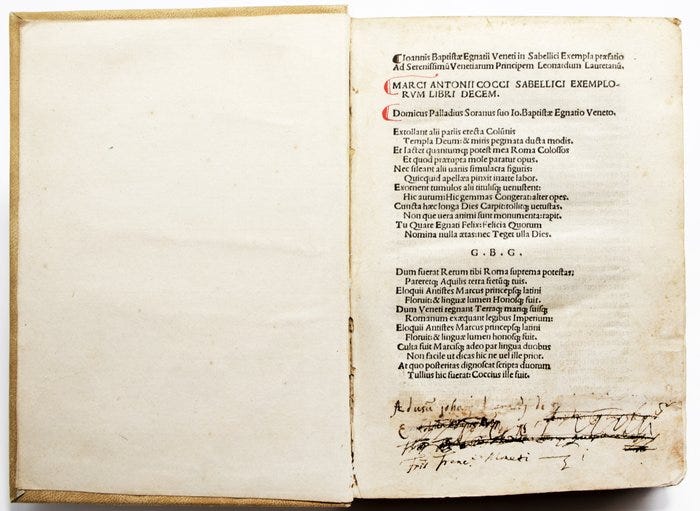 Ioannis Baptistæ Egnatii Veneti in Sabellici Exempla præfatio
Ad Serenissimũ Venetiarum Principem Leonardum Lauretanũ.
MARCI ANTONII COCCI SABELLICI EXEMPLO-
RVM LIBRI DECEM.
Domicus Palladius Soranus suo Io. Baptistæ Egnatio Veneto.
Extollant alii pariis erecta Colũnis
Templa Deum: & miris pegmata ducta modis.
Et iactet quantumq; potest mea Roma Colossos
Et quod prærupta mole paratur opus.
Nec sileant alii uariis simulacra figuris:
Quicquid apellæa pinxit inarte labor.
Exornent tumulos alii titulisq; uenustent:
Hic aurum: Hic gemmas Congerat: alter opes.
Cuncta hæc longa Dies Carpit: tollitq; uetustas.
Non que uera animi sunt monumenta: rapit.
Tu Quare Egnati Felix: Felicia Quorum
Nomina nulla ætas: nec Teget ulla Dies.
G. B. G.
Dum fuerat Rerum tibi Roma suprema potestas:
Pareretq; Aquilis terra fretũq; tuis.
Eloquii Antistes Marcus princepsq; latini
Floruit: & linguæ lumen Honosq; fuit.
Dum Veneti regnant Terraq; mariq; suisq;
Romanum exæquant legibus Imperium:
Eloquii Antistes Marcus princepsq; latini
Floruit: & linguæ lumen honosq; fuit.
Culta fuit Marcisq; adeo par lingua duobus
Non facile ut dicas hic ne uel ille prior.
At quo posteritas dignoscat scripta duorum
Tullius hic fuerat: Coccius ille fuit.
Ad usũ